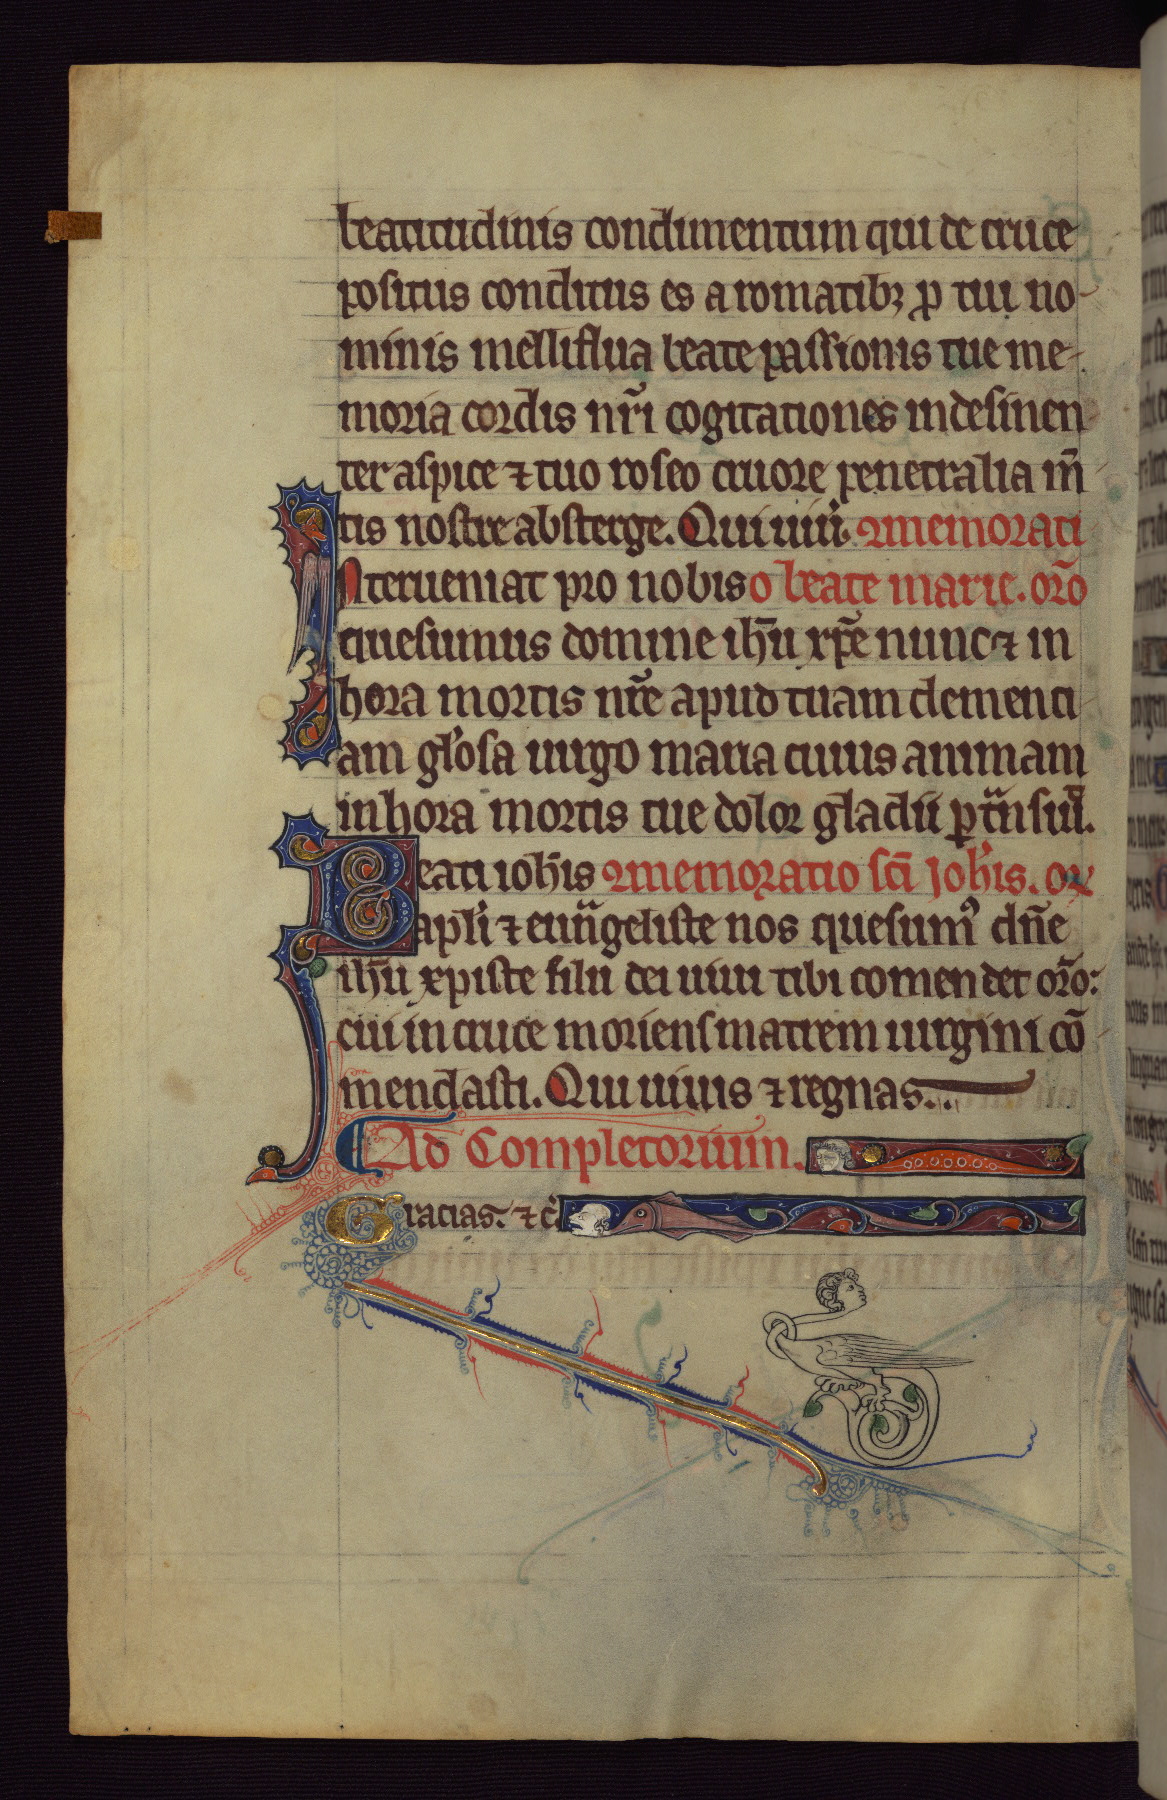 beatitudinis condimentum qui de cruce
positus conditus es aromatibꝫ ꝓ tui no-
minis melliflua beate passionis tue me-
moria cordis nr̃i cogitationes indesinen
ter aspice ⁊ tuo roseo cruore penetralia m̃
tis nostre absterge. Qui uiuis ꝯmemorati
Interueniat pro nobis o beate marie. or̃o
quesumus domine ih̃u xp̃e nunc ⁊ in
hora mortis nr̃e apud tuam clementi
am gl'osa uirgo maria cuius animam
in hora mortis tue dolor gladii ꝑtñsiuit.
Beati ioh̃is ꝯmemoratio sc̃i Joh̃is. or
apl'i ⁊ euũgeliste nos quesumꝰ dñe
ih̃u xpiste filii dei uiui tibi comendet or̃o:
cui in cruce moriens matrem uirgini cõ
mendasti. Qui uiuis ⁊ regnas..
Ad Completorium.
Gracias. ⁊ c̃